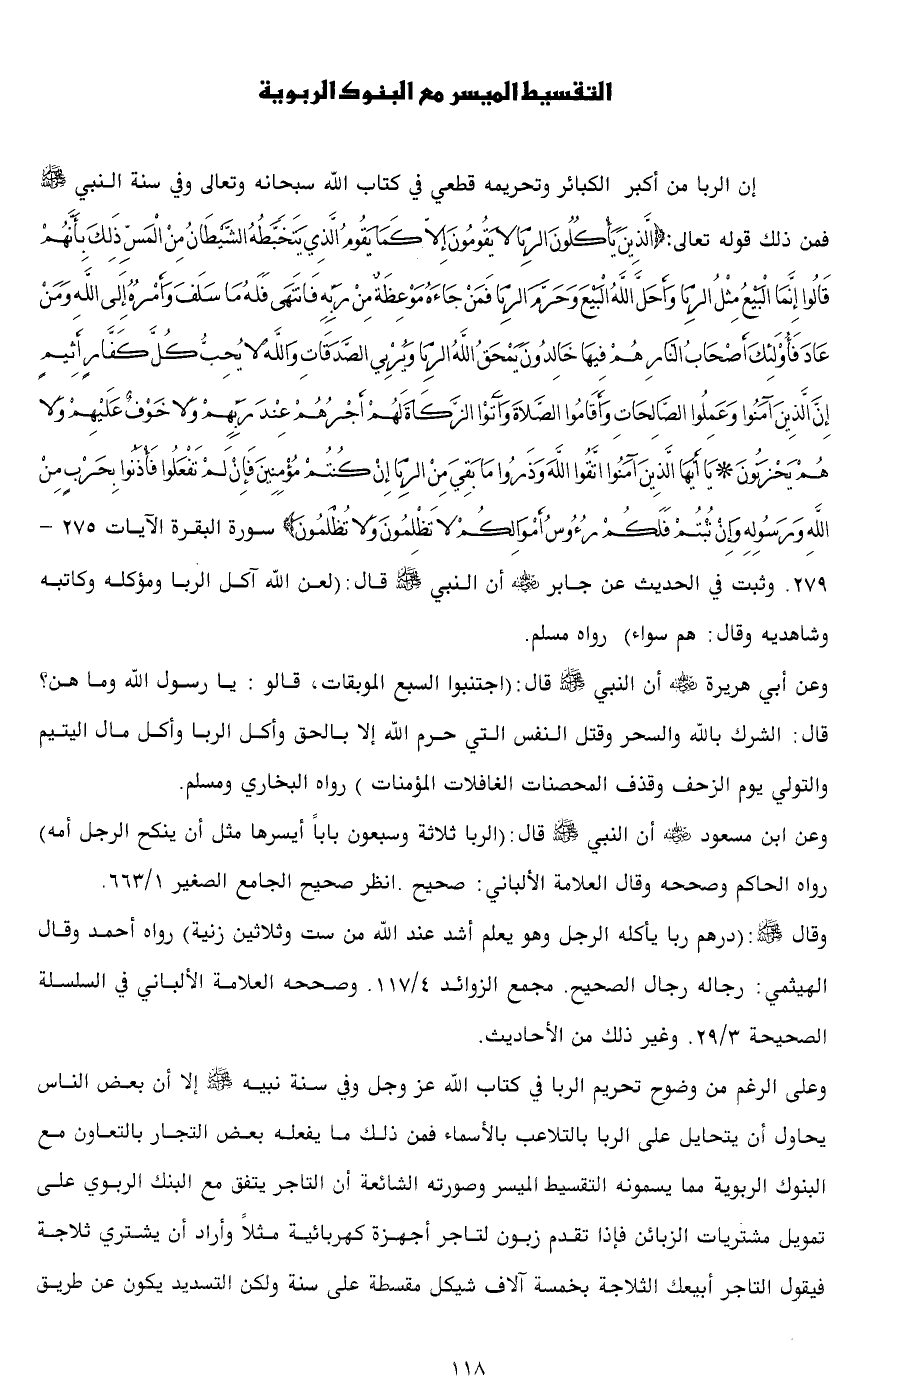 التقسيط الميسر مع البنوك الربوية
إن الربا من أكبر الكبائر وتحريمه قطعي في كتاب الله سبحانه وتعالى وفي سنة النبي ﷺ
فمن ذلك قوله تعالى:﴿الَّذِينَ يَأْكُلُونَ الرِّبَا لَا يَقُومُونَ إِلَّا كَمَا يَقُومُ الَّذِي يَتَخَبَّطُهُ الشَّيْطَانُ مِنْ الْمَسِّ ذَلِكَ بِأَنَّهُمْ
قَالُوا إِنَّمَا الْبَيْعُ مِثْلُ الرِّبَا وَأَحَلَّ اللَّهُ الْبَيْعَ وَحَرَّمَ الرِّبَا فَمَنْ جَاءَهُ مَوْعِظَةٌ مِنْ رَبِّهِ فَانتَهَى فَلَهُ مَا سَلَفَ وَأَمْرُهُ إِلَى اللَّهِ وَمَنْ
عَادَ فَأُوْلَئِكَ أَصْحَابُ النَّارِ هُمْ فِيهَا خَالِدُونَ يَمْحَقُ اللَّهُ الرِّبَا وَيُرْبِي الصَّدَقَاتِ وَاللَّهُ لَا يُحِبُّ كُلَّ كَفَّارٍ أَثِيمٍ
إِنَّ الَّذِينَ آمَنُوا وَعَمِلُوا الصَّالِحَاتِ وَأَقَامُوا الصَّلَاةَ وَآتَوْا الزَّكَاةَ لَهُمْ أَجْرُهُمْ عِنْدَ رَبِّهِمْ وَلَا خَوْفٌ عَلَيْهِمْ وَلَا
هُمْ يَحْزَنُونَ * يَا أَيُّهَا الَّذِينَ آمَنُوا اتَّقُوا اللَّهَ وَذَرُوا مَا بَقِيَ مِنْ الرِّبَا إِنْ كُنتُمْ مُؤْمِنِينَ فَإِنْ لَمْ تَفْعَلُوا فَأْذَنُوا بِحَرْبٍ مِنْ
اللَّهِ وَرَسُولِهِ وَإِنْ تُبْتُمْ فَلَكُمْ رُءُوسُ أَمْوَالِكُمْ لَا تَظْلِمُونَ وَلَا تُظْلَمُونَ﴾ سورة البقرة الآيات ٢٧٥ –
٢٧٩. وثبت في الحديث عن جابر ﷜ أن النبي ﷺ قال:(لعن الله آكل الربا ومؤكله وكاتبه
وشاهديه وقال: هم سواء) رواه مسلم.
وعن أبي هريرة ﷜ أن النبي ﷺ قال:(اجتنبوا السبع الموبقات، قالو : يا رسول الله وما هن؟
قال: الشرك بالله والسحر وقتل النفس التي حرم الله إلا بالحق وأكل الربا وأكل مال اليتيم
والتولي يوم الزحف وقذف المحصنات الغافلات المؤمنات ) رواه البخاري ومسلم.
وعن ابن مسعود ﷜ أن النبي ﷺ قال:(الربا ثلاثة وسبعون باباً أيسرها مثل أن ينكح الرجل أمه)
رواه الحاكم وصححه وقال العلامة الألباني: صحيح .انظر صحيح الجامع الصغير ٦٦٣/١.
وقال ﷺ:(درهم ربا يأكله الرجل وهو يعلم أشد عند الله من ست وثلاثين زنية) رواه أحمد وقال
الهيثمي: رجاله رجال الصحيح. مجمع الزوائد ١١٧/٤. وصححه العلامة الألباني في السلسلة
الصحيحة ٢٩/٣. وغير ذلك من الأحاديث.
وعلى الرغم من وضوح تحريم الربا في كتاب الله عز وجل وفي سنة نبيه ﷺ إلا أن بعض الناس
يحاول أن يتحايل على الربا بالتلاعب بالأسماء فمن ذلك ما يفعله بعض التجار بالتعاون مع
البنوك الربوية مما يسمونه التقسيط الميسر وصورته الشائعة أن التاجر يتفق مع البنك الربوي على
تمويل مشتريات الزبائن فإذا تقدم زبون لتاجر أجهزة كهربائية مثلاً وأراد أن يشتري ثلاجة
فيقول التاجر أبيعك الثلاجة بخمسة آلاف شيكل مقسطة على سنة ولكن التسديد يكون عن طريق
١١٨